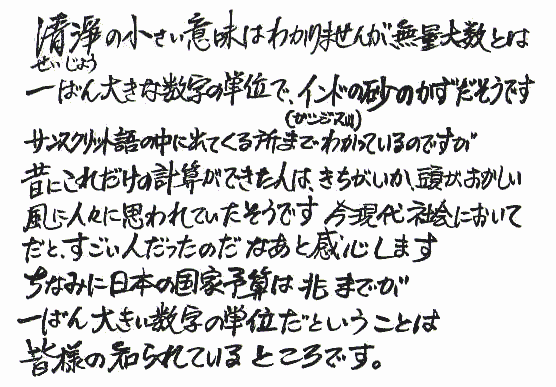 清浄の小さい意味はわかりませんが無量大数とは
せいじょう
一ばん大きな数字の単位で、インドの砂のかずだそうです
(ガンジス川)
サンスクリット語の中に出てくる所までわかっているのですが
昔にこれだけの計算ができた人は、きちがいか、頭がおかしい
風に人々に思われていたそうです 今現代社会において
だと、すごい人だったのだなあと感心します
ちなみに日本の国家予算は兆までが
一ばん大きい数字の単位だということは
皆様の知られているところです。